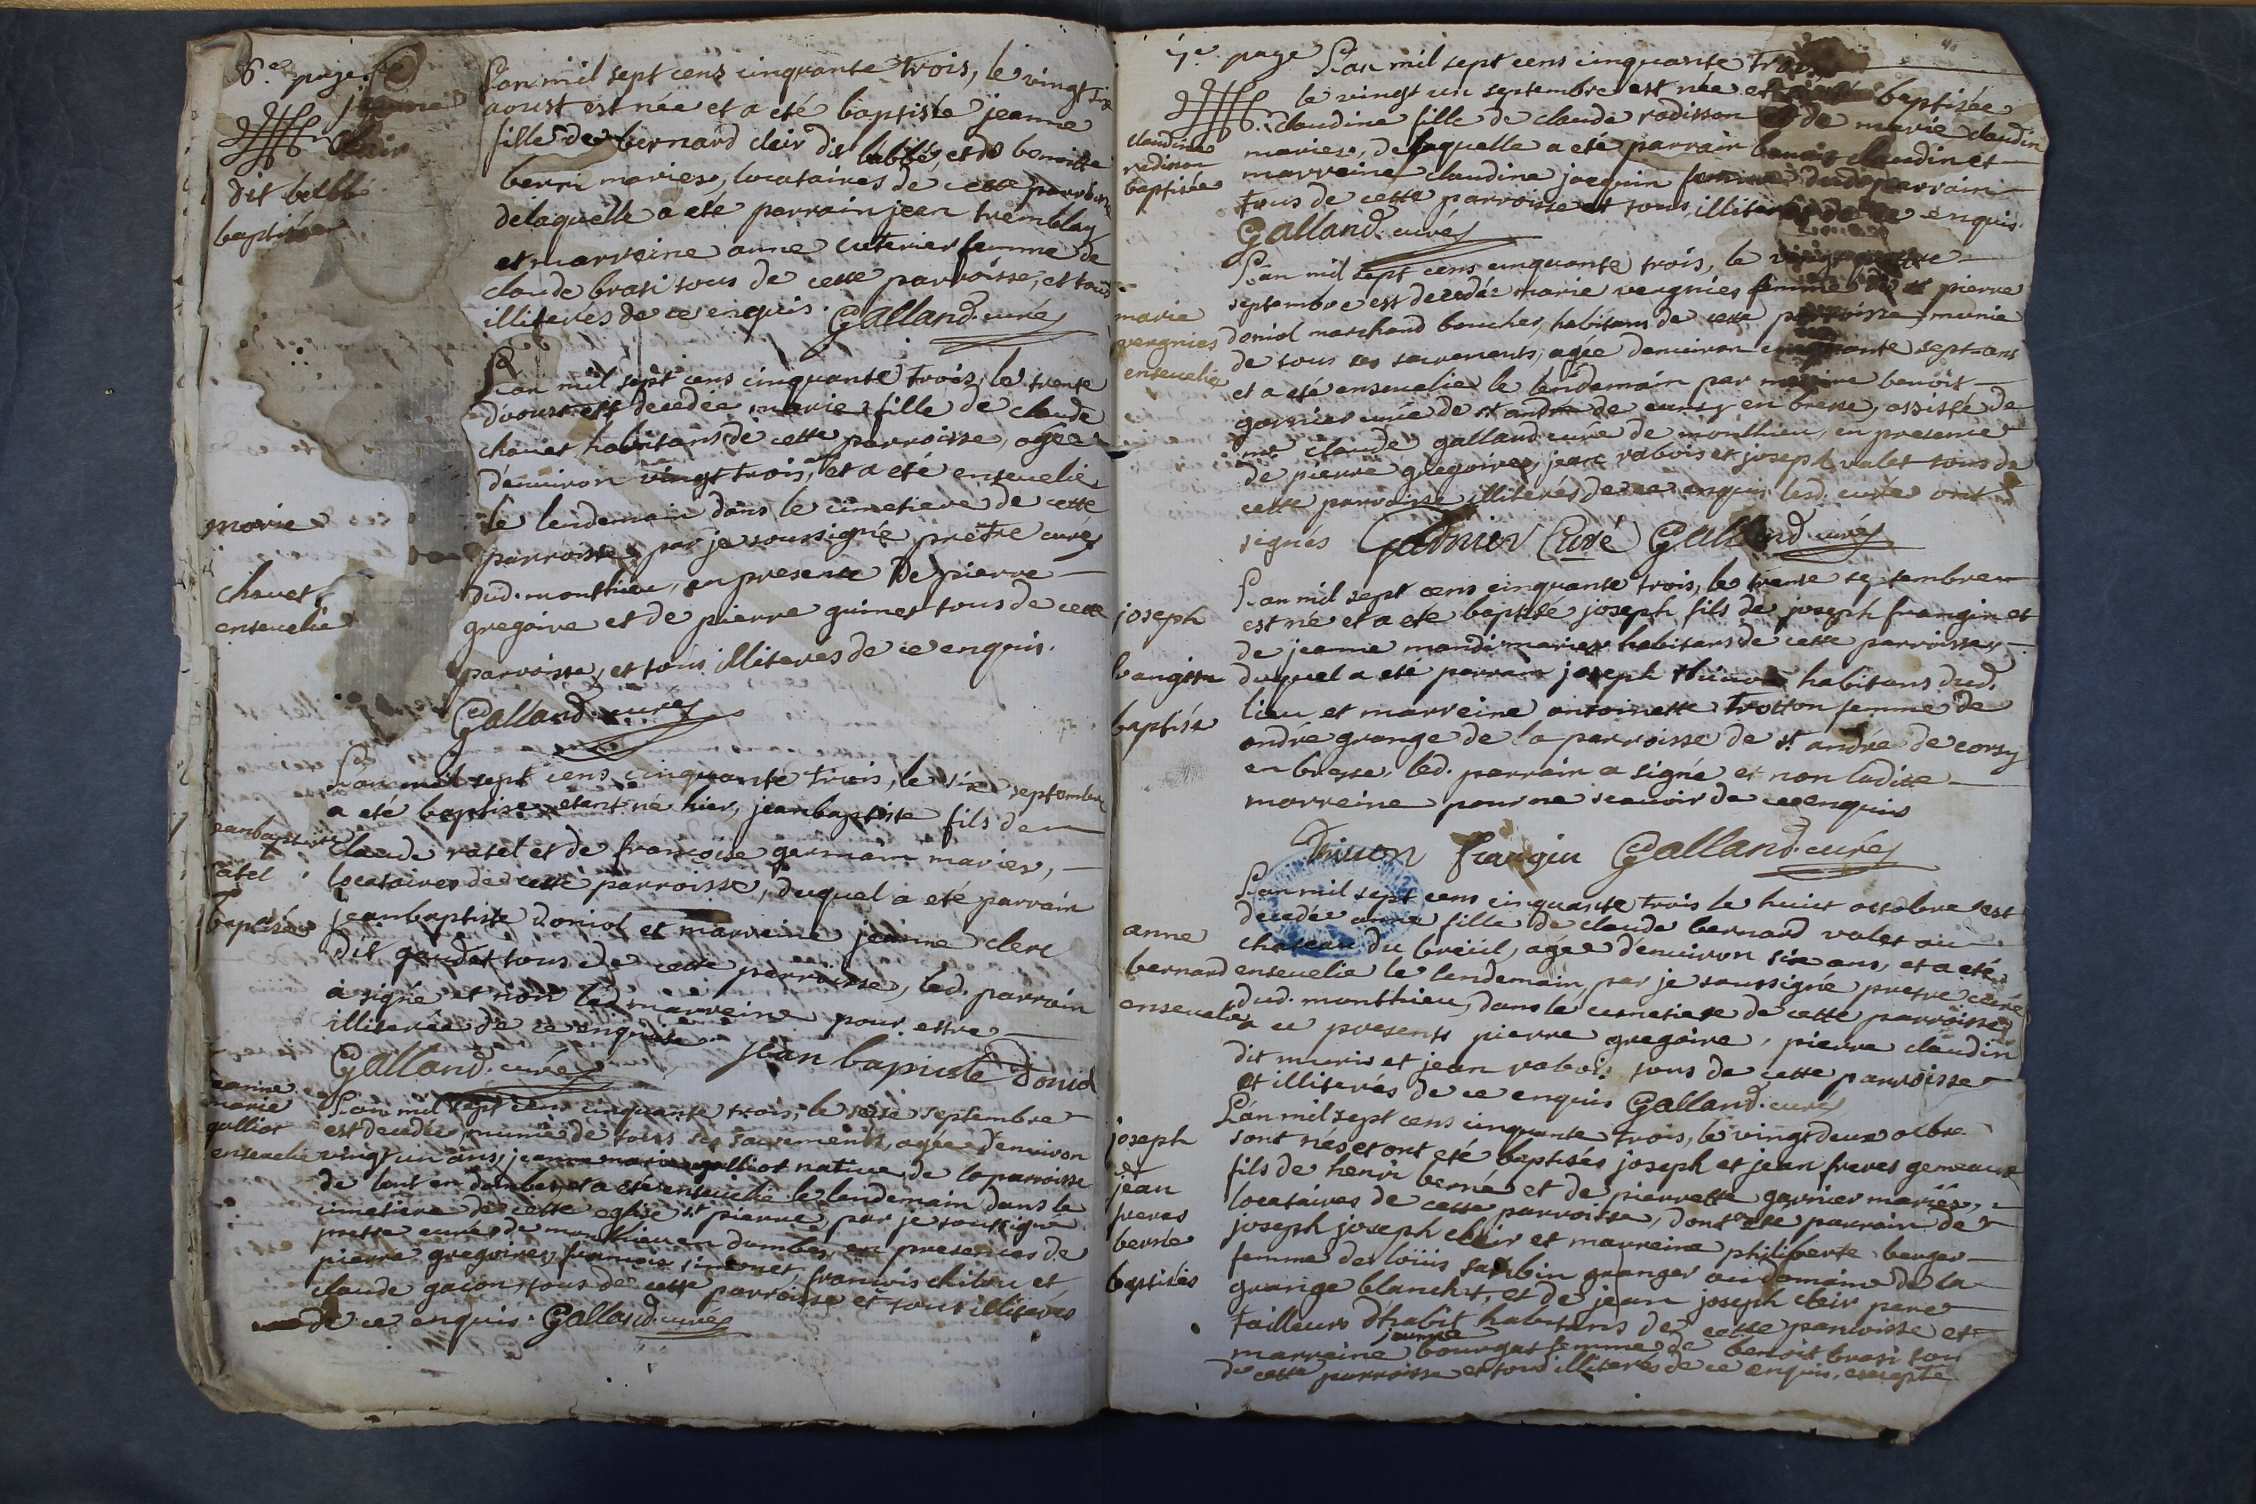 6.e page
jeanne
Clair
dit balbé
baptisée
L'an mil sept cens cinquante trois, le vingt six
aoust est née et a eté baptisée jeanne
fille de bernard cleir dit balbé, et de benoitte
berri mariés, locataires de cette parroisse
delaquelle a eté parrain jean tremblay
et marreine anne cuterier femme de
claude brasi tous de cette parroisse, et tous
illiterés de ce enquis. Galland curé
marie
chanet
ensevelie
L'an mil sept cens cinquante trois, le trente
d'aoust est decedée marie fille de claude
chanet habitans de cette parroisse, agée
d'enuiron vingt trois, et a eté enseuelie
le lendemain dans le cimetiere de cette
parroisse, par je soussigné prêtre curé
dud. monthieu, en presence de pierre
gregoire et de pierre guinet tous de cette
parroisse, et tous illiterés de ce enquis.
Galland curé
jeanbaptiste
ratel
baptisé
L'an mil sept cens cinquante trois, le six septembre
a eté baptisé etant né hier, jeanbaptiste fils de
claude ratel et de francoise germain mariés,
locataires de cette parroisse, duquel a eté parrain
jeanbaptiste doniol et marreine jeanne clerc
dit gaudet tous de cette parroisse, led. parrain
a signé et non lad. marreine pour estre
illiterée de ce enquise
Galland curé jean baptiste Doniol
jeanne
marie
galliot
enseuelie
L'an mil sept cens cinquante trois, le seise septembre
est decedée munie de tous ses sacrements, agée d'enuiron
vingt un ans, jeanne marie galliot natiue de la parroisse
de lant en dombes, et a eté enseuelie le lendemain dans le
cimetiere de cette eglise st pierre, par je soussigné
prettre curé de monthieu en dombes, en presences de
pierre gregoire, francois simonet, francois chilou et
claude gacon, tous de cette parroisse et tous illiterés
de ce enquis. Galland curé
7.e page
claudine
radisson
baptisée
L'an mil sept cens cinquante trois
le vingt un septembre est née et a eté baptisée
claudine fille de claude radisson et de marie claudin
mariés, de laquelle a eté parrain benoit claudin et
marreine claudine jacquin femme dud. parrain
tous de cette parroisse et tous illiterés de ce enquis.
Galland curé
marie
vergnies
enseuelie
L'an mil sept cens cinquante trois, le vingt quattre
septembre est decedée marie vergnies femme de st pierre
doniol marchand boucher, habitans de cette parroisse, munie
de tous ses sacrements, agée denuiron cinquante sept ans
et a eté enseuelie le lendemain par messire benoit
garnier curé de st andré de corsy en bresse, assisté de
mre claude galland curé de monthieu, en presence
de pierre gregoire, jean rabois et joseph valet tous de
cette parroisse illiterés de ce enquis lesd. curés ont
signés Garnier Curé Galland curé
joseph
frangin
baptisé
L'an mil sept cens cinquante trois, le trente septembre
est né et a eté baptisé joseph fils de joseph frangin et
de jeanne mandi mariés habitans de cette parroisse,
duquel a eté parrain joseph habitans dud.
lieu et marreine antoinette trotton femme de
andré grange de la parroisse de st andré de corsy
en bresse, led. parrain a signé et non ladite
marreine pour ne scauoir de ce enquis
frangin Galland curé
anne
bernard
enseuelie
L'an mil sept cens cinquante trois le huict octobre est
decedée anne fille de claude bernard valet au
chateau du breüil, agée d'enuiron six ans, et a eté
enseuelie le lendemain, par je soussigné pretre curé
dud. monthieu, dans le cimetiere de cette parroisse,
a ce presents pierre gregoire, pierre claudin
dit muris et jean rabois tous de cette parroisse
et illiterés de ce enquis Galland curé
joseph
et
jean
freres
berné
baptisés
L'an mil sept cens cinquante trois, le vingt deux octbre
sont nés et ont eté baptisés joseph et jean freres gemeaux
fils de henri berné et de pierrette garnier mariés,
locataires de cette parroisse, dont a eté parrain de
joseph joseph cleir et marreine philiberte berger
femme de loüis sarbin granger au domaine de la
grange blanche, et de jean joseph cleir pere
tailleurs d'habit habitans de cette parroisse et
marreine jeanne bourgat femme de benoit brasi tous
de cette parroisse et tous illiterés de ce enquis, excepté